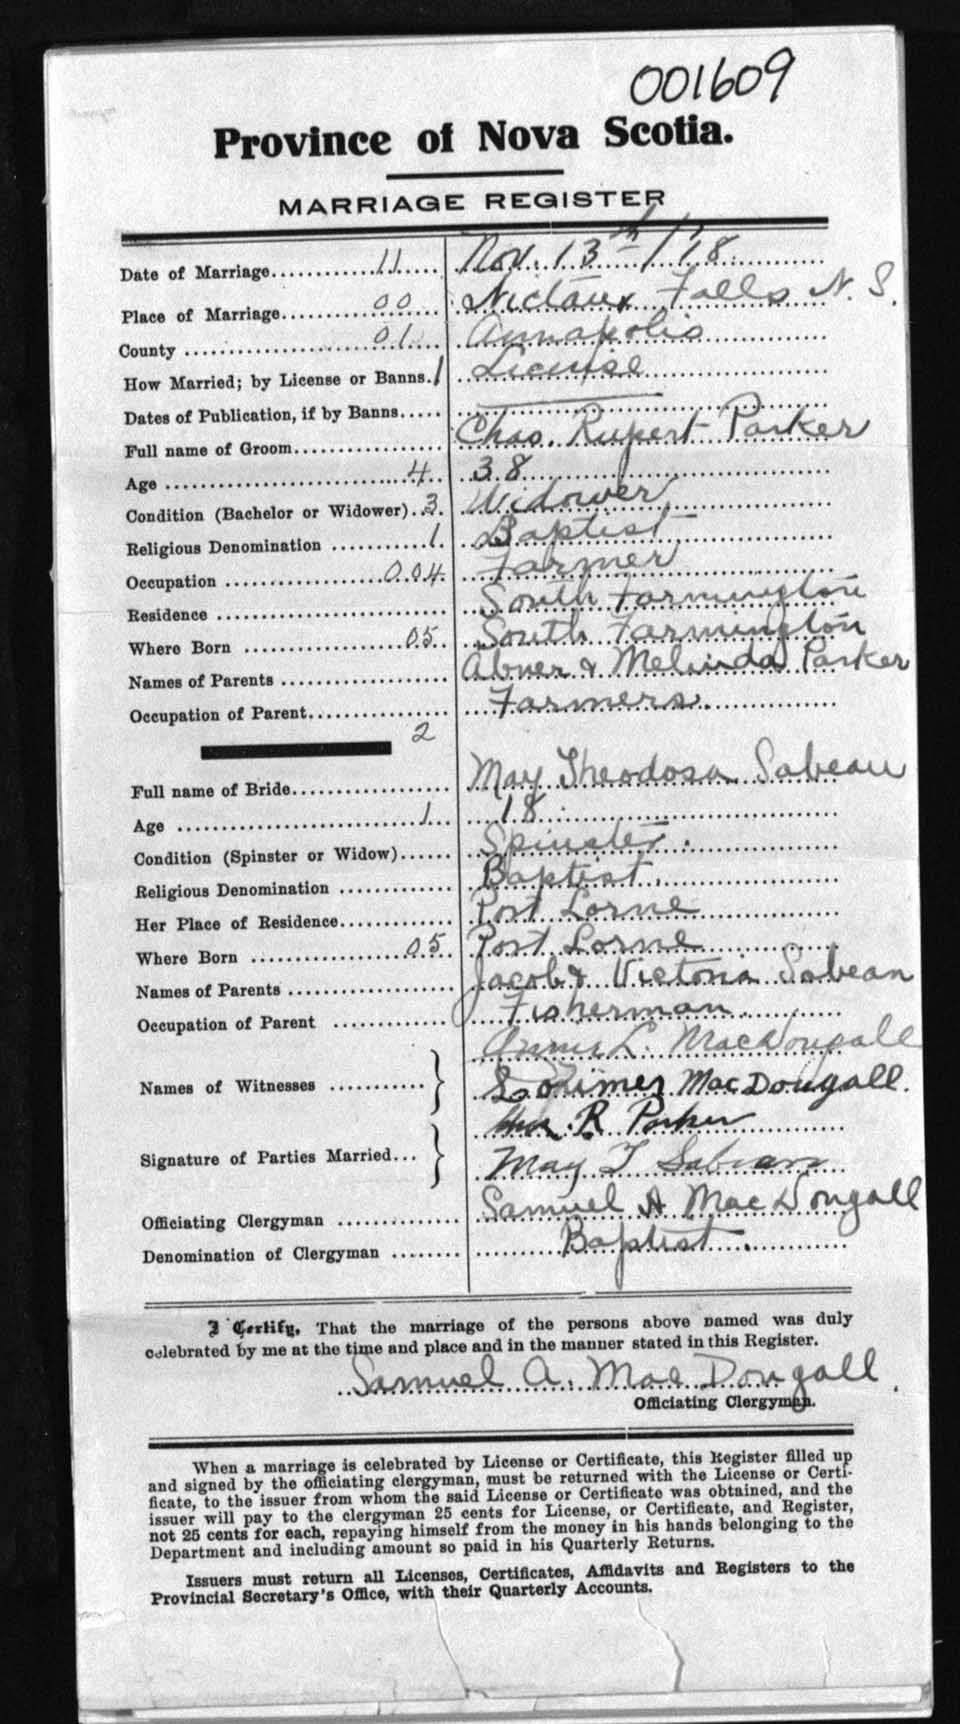 001609
Province of Nova Scotia.
MARRIAGE REGISTER
Date of Marriage 11 Nov. 13th/18.
Place of Marriage 00 Nictaux Falls N. S.
County 01 Annapolis
How Married; by License or Banns. 1 License
Dates of Publication, if by Banns
Full name of Groom Chas. Rupert Parker
Age 4 38
Condition (Bachelor or Widower) 3 Widower
Religious Denomination 1 Baptist
Occupation 004 Farmer
Residence South Farmington
Where Born 05 South Farmington
Names of Parents Abner & Melinda Parker
Occupation of Parent Farmers.
2
Full name of Bride May Theodosa Sabean
Age 1 18
Condition (Spinster or Widow) Spinster.
Religious Denomination Baptist.
Her Place of Residence Port Lorne
Where Born 05 Port Lorne
Names of Parents Jacob & Victoria Sabean
Occupation of Parent Fisherman
L. MacDougall
Names of Witnesses Lorimer MacDougall.
R Parker
Signature of Parties Married May T Sabean
Officiating Clergyman Samuel A MacDougall
Denomination of Clergyman Baptist.
I Certify, That the marriage of the persons above named was duly
celebrated by me at the time and place and in the manner stated in this Register.
Samuel A. MacDougall.
Officiating Clergyman.
When a marriage is celebrated by License or Certificate, this Register filled up
and signed by the officiating clergyman, must be returned with the License or Certi-
ficate, to the issuer from whom the said License or Certificate was obtained, and the
issuer will pay to the clergyman 25 cents for License, or Certificate, and Register,
not 25 cents for each, repaying himself from the money in his hands belonging to the
Department and including amount so paid in his Quarterly Returns.
Issuers must return all Licenses, Certificates, Affidavits and Registers to the
Provincial Secretary's Office, with their Quarterly Accounts.